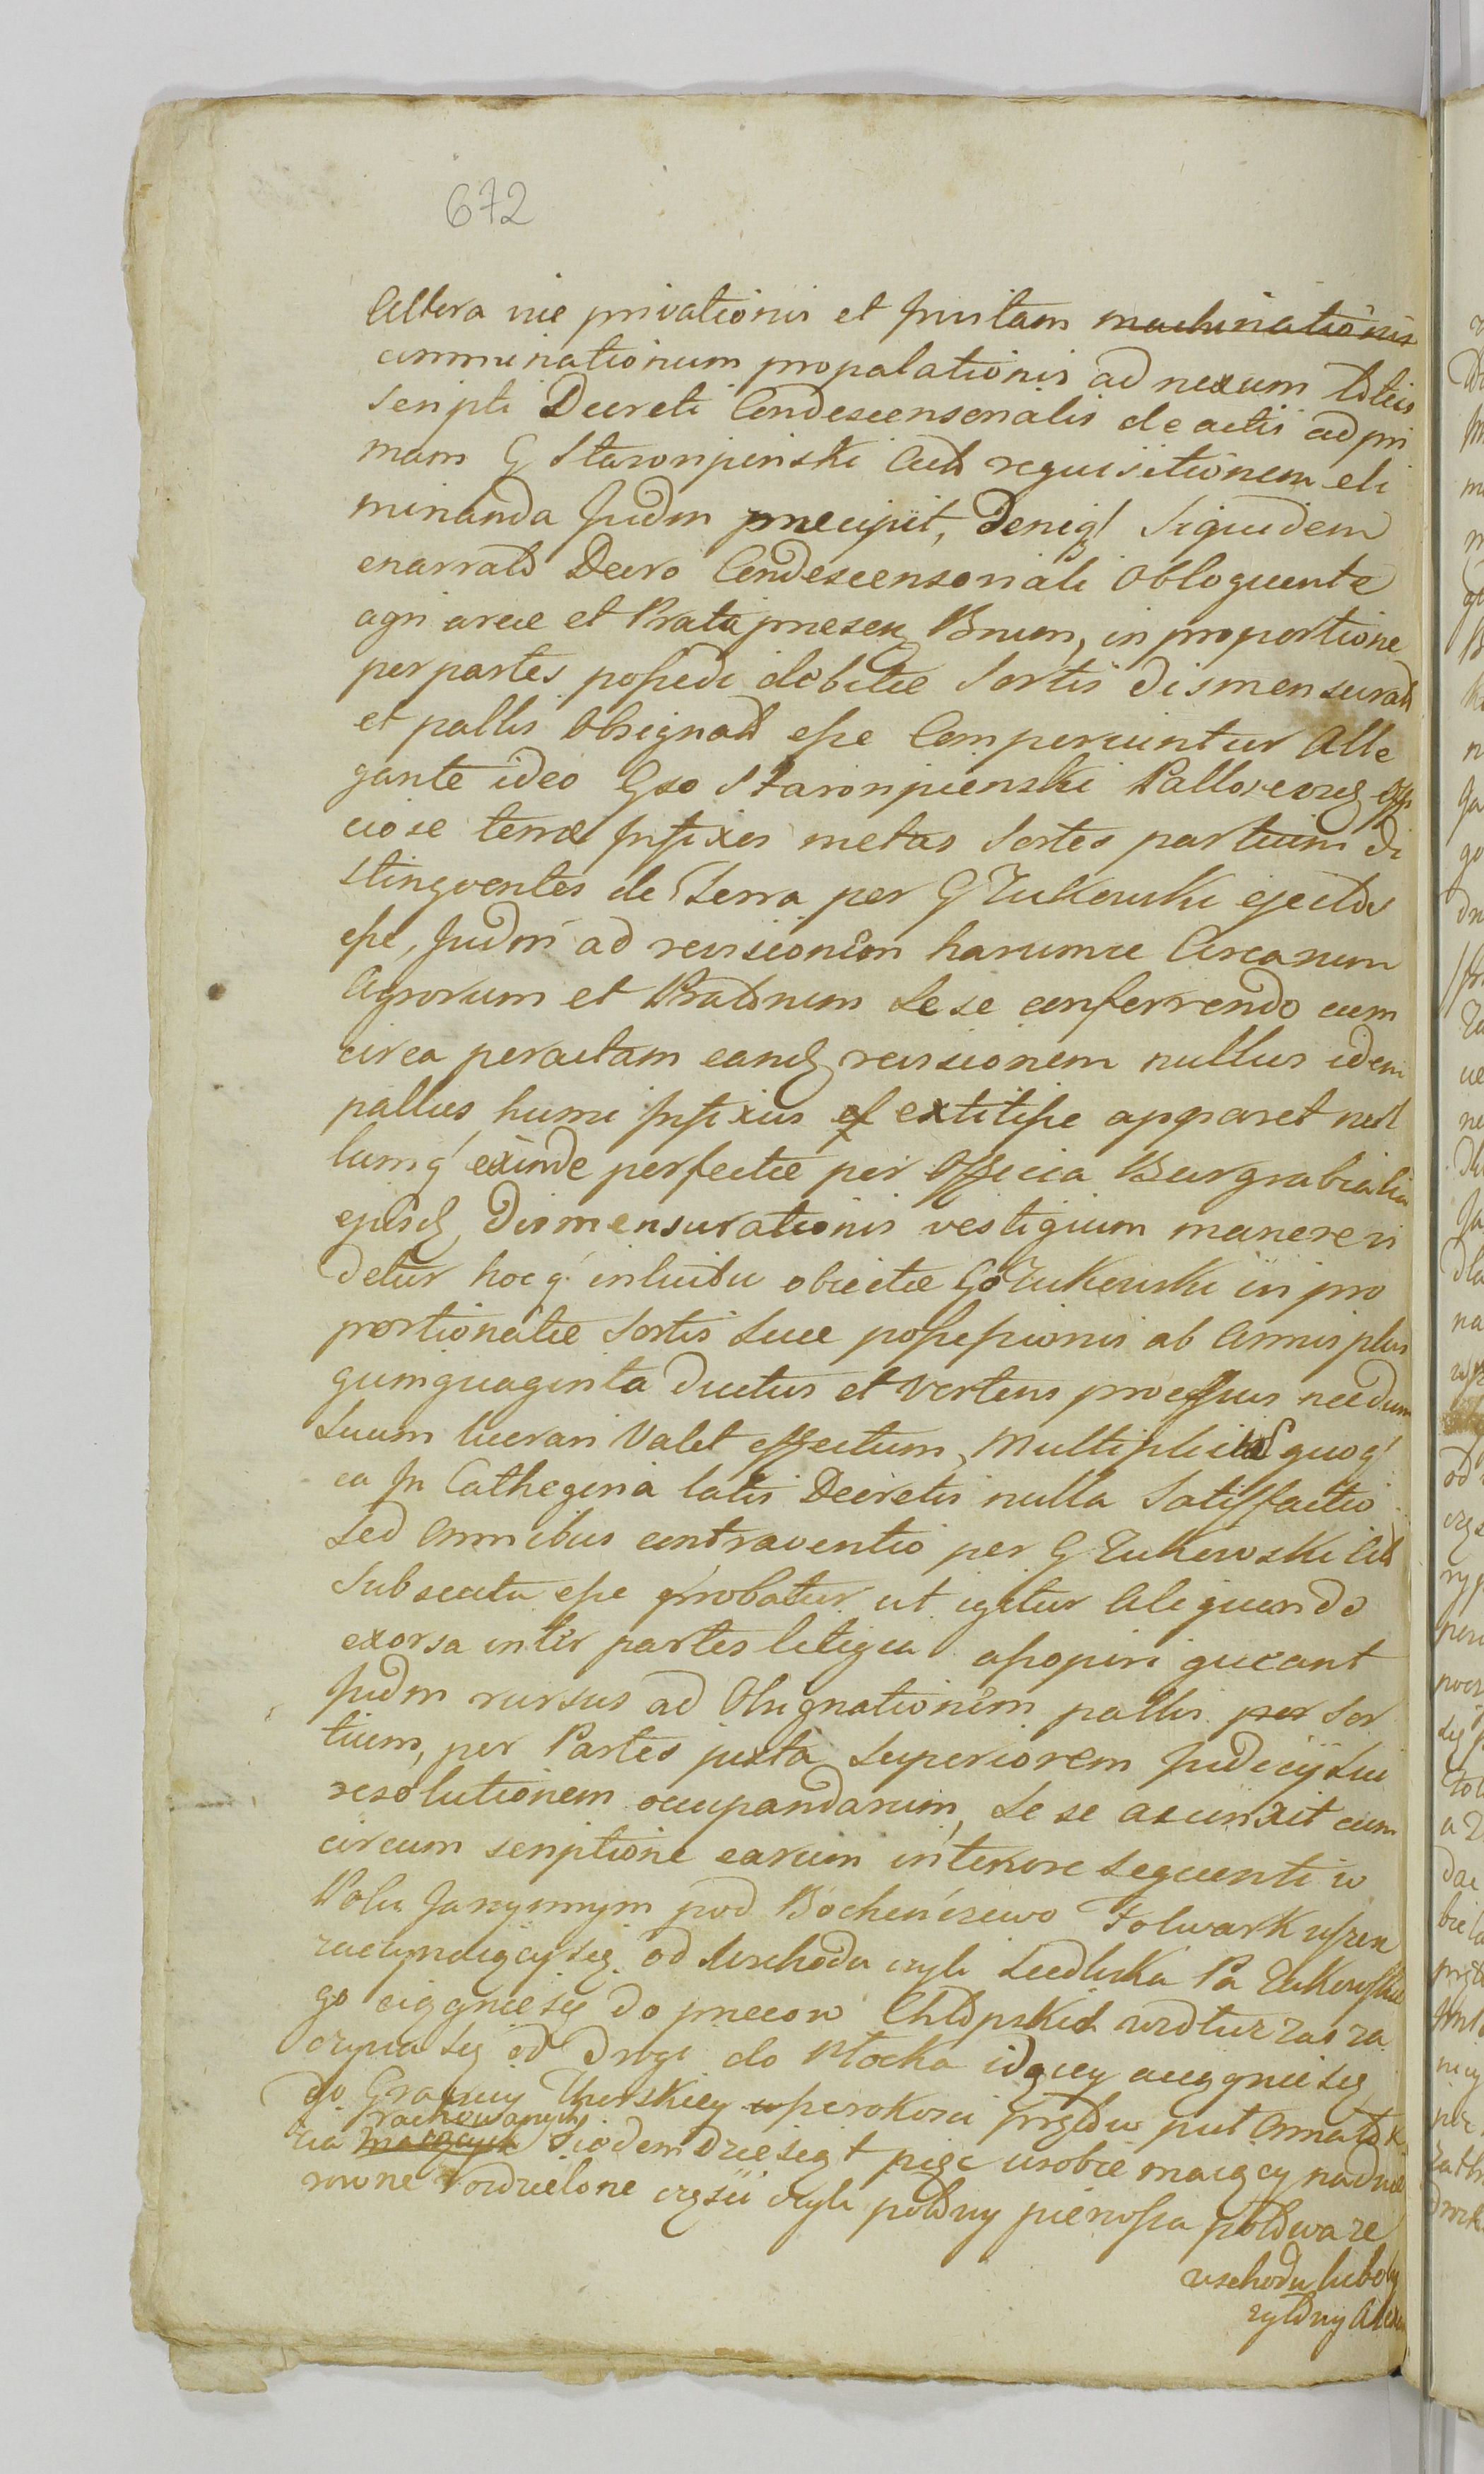 672
Altera vie privationis et fruitam machinationis
comminationum propalationis ad nexum toties
scripti Decreti Condescensorialis de actis ad pri
mam G Staroripinski Actis requisitionem eli
minanda Judm praecipit, deniq Siquidem
enarrato Decro Condescensoriali Obloquente
agri areae et Prata praesen Bnum, in proportione
per partes possedi debitae Sortis dismensurata
et pallis Obsignata esse Comperiuntur Alle
gante ideo Gso Staroripienski Pallos eosd offi
ciose terrae infixos metas Sortes partium di
stingventes de Terra per G Zukowski ejectos
esse, Judm ad revisionem harumce Arearum
Agrorum et Pratorum Sese conferrendo cum
circa peractam eand revisionem nullus idem
pallus humi infixus extitisse apparet nul
lumq exinde perfectae per Officia Burgrabialia
ejusd Dismensurationis vestigium manere vi
detur hocq intuitu obiectae Go Zukowski in pro
portionatae Sortis Suae possessionis ab Annis plus
quinquaginta ductus et vertens processus necdum
Suum lucrari Valet effectum, Multiplicibus quoq
ea In Cathegoria latis Decretis nulla Satisfactio
Sed Omnibus contraventio per G Zukowski Cit
Subsecuta esse probatur ut igitur Aliquando
exorsa inter partes litigia assopiri queant
Judm rursus ad Obsignationem pallis per Sor
tium, per Partes juxta Superiorem Judicij Sui
resolutionem occupandarum, Se se accinxit cum
circum scriptione earum interiore sequenti w
Polu Jarzynnym pod Bochenszewo Folwark wszen
zaczynaiący się od Wschodu czyli Siedliska Pa Zukowskie
go ciągnie się do pnecow Chłopskich wzdłuz zas za
czyna się od Drogi do Płocka idącey a ciągnie się
do Granicy Thurskiey w szerokosci prętow pul
rachowanych
cia maiących Siodemdziesiąt pięć wsobie maiący na dwie
rowne rozdzielone części czyli połowy pierwsza połowa ze
wschodu lubo